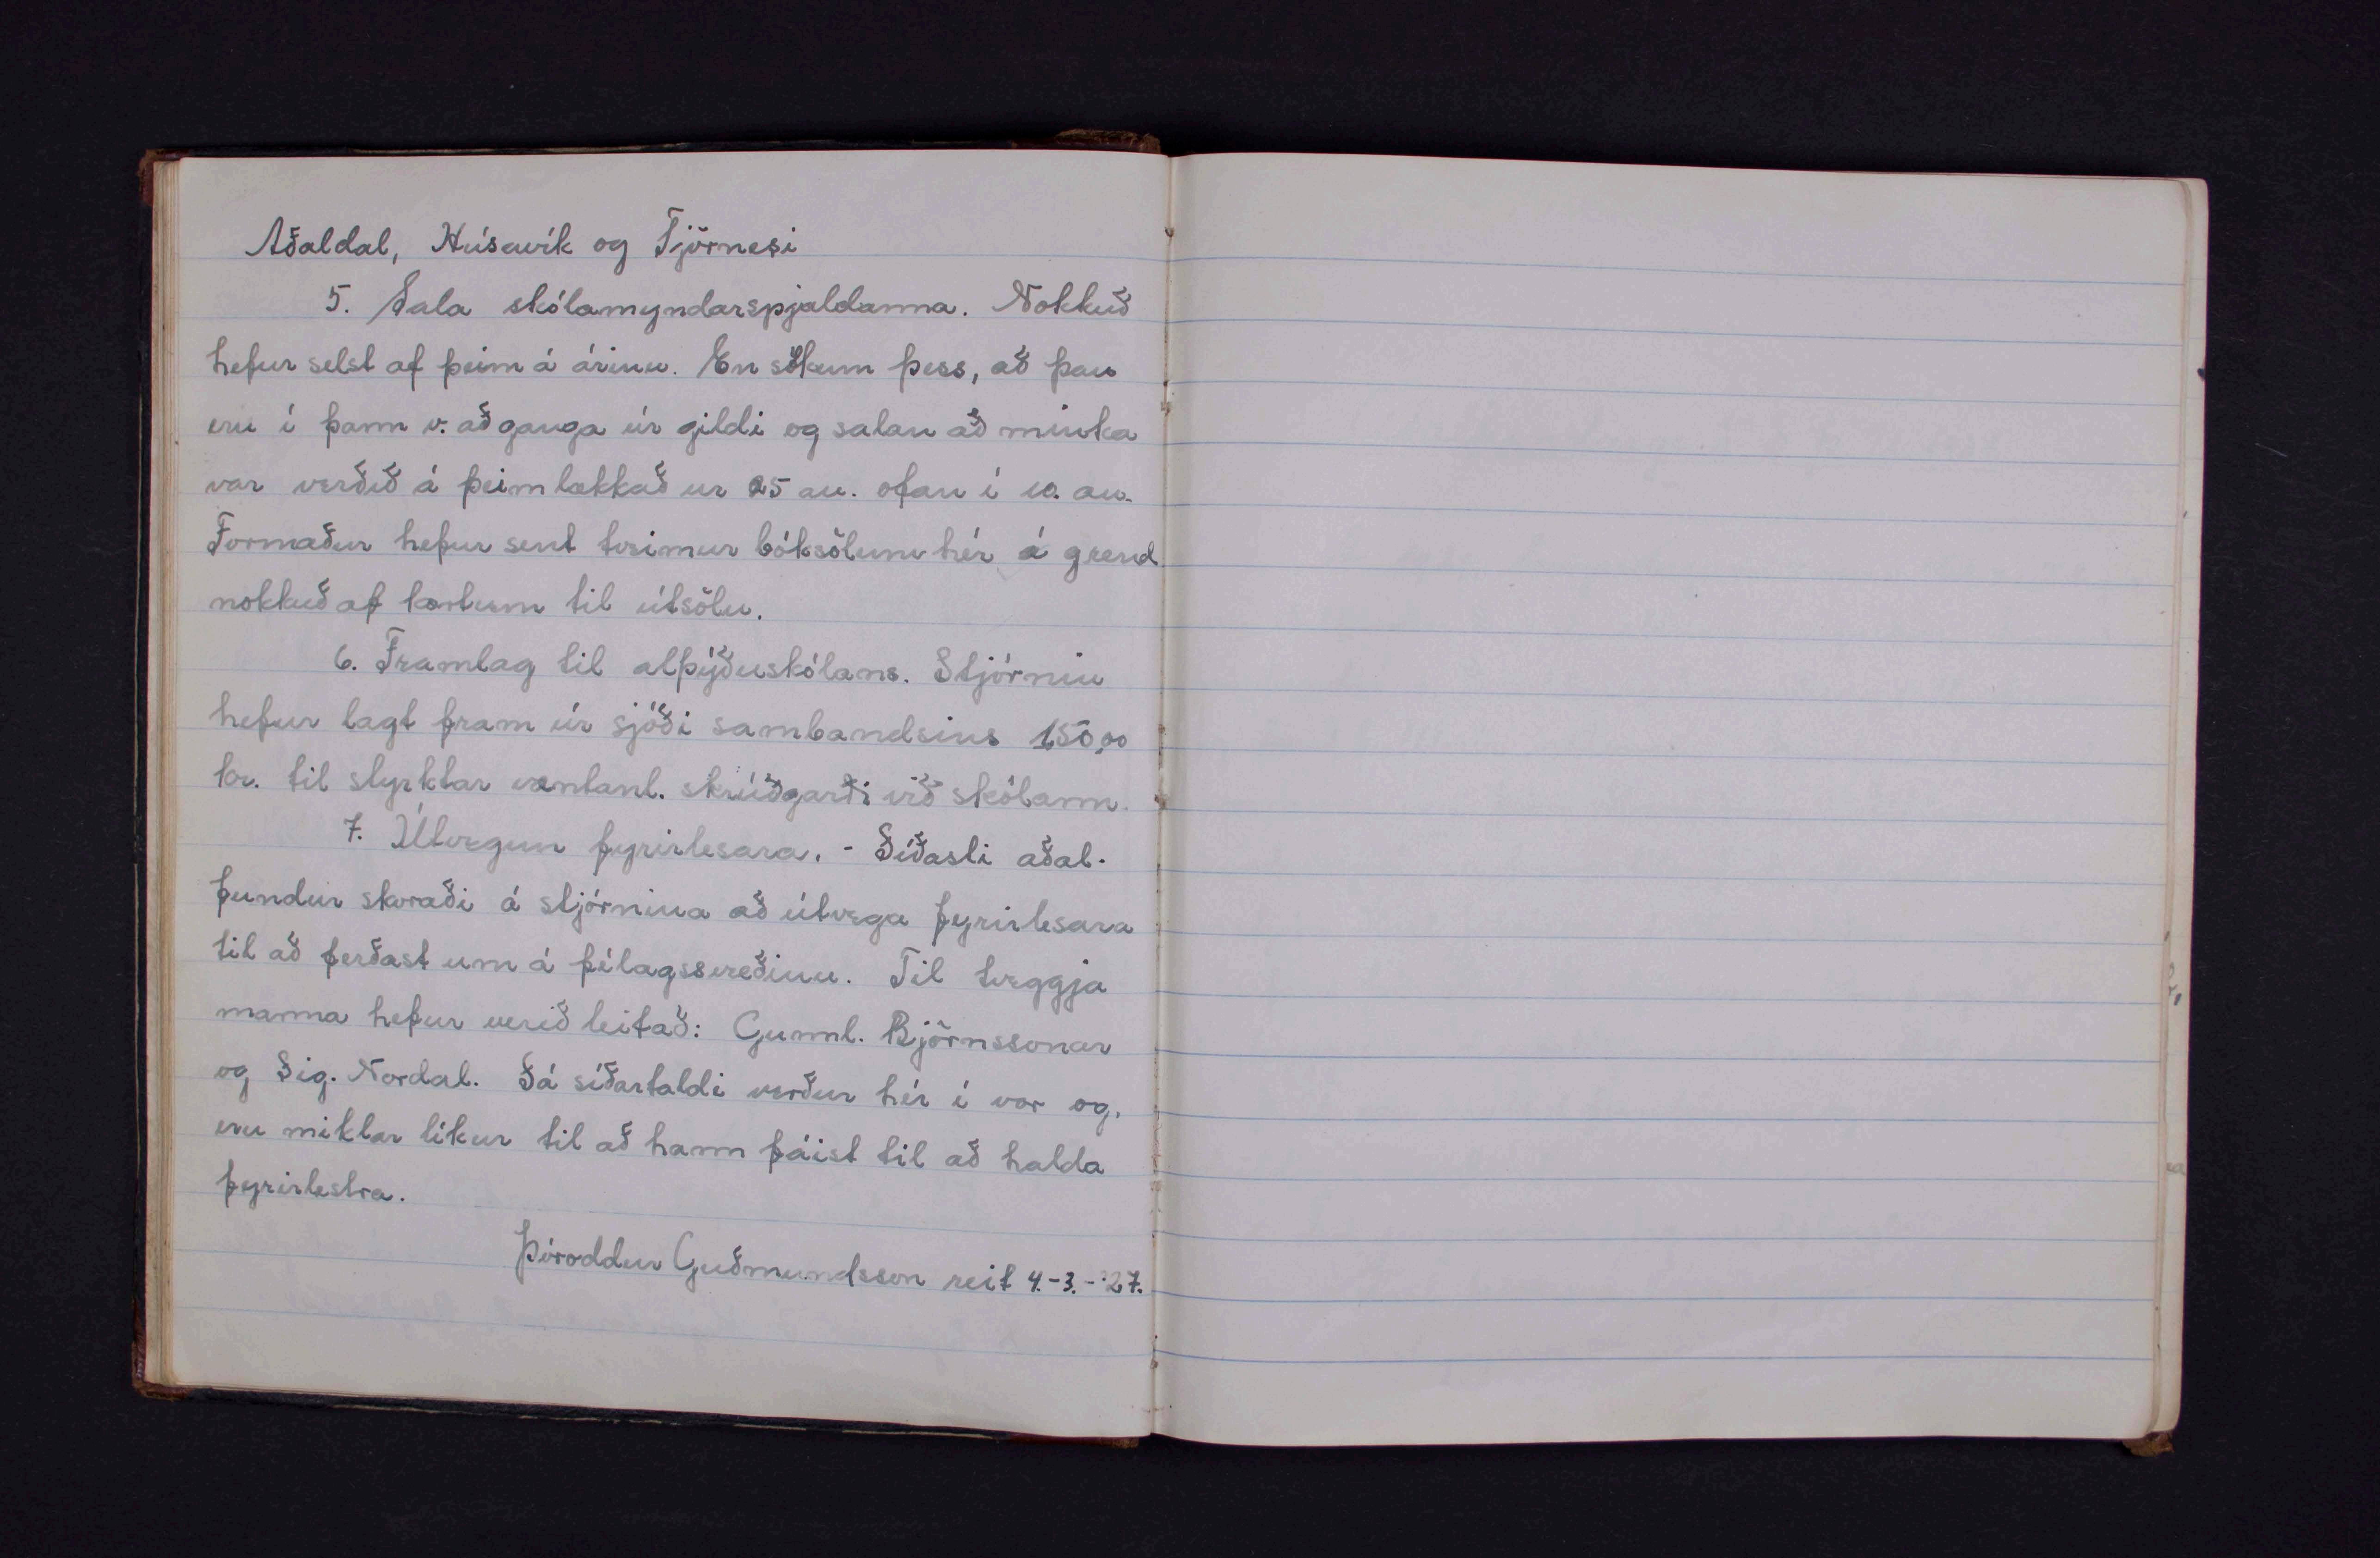 Aðaldal, Húsavík og Tjörnesi
5. Sala skólamyndarspjaldanna. Nokkuð
hefur selst af þeim á árinu. En sökum þess, að þau
eru í þann v. að ganga úr gildi og salan að minka
var verðið á þeim lækkað úr 25 au. ofan í 10. au.
Formaður hefur sent tveimur bóksölum hér á grend
nokkuð af kortum til útsölu.
6. Framlag til alþýðuskólans. Stjórnin
hefur lagt fram úr sjóði sambandsins 150,00
kr. til styrktar væntanl. skrúðgarði við skólann.
7. Útvegun fyrirlesara. - Síðasti aðal-
fundur skoraði á stjórnina að útvega fyrirlesara
til að ferðast um á félagssvæðinu. Til tveggja
manna hefur verið leitað: Gunnl. Björnssonar
og Sig. Nordal. Sá síðartaldi verður hér í vor og,
eru miklar líkur til að hann fáist til að halda
fyrirlestra.
Þóroddur Guðmundsson reit 4.-3.-'27.